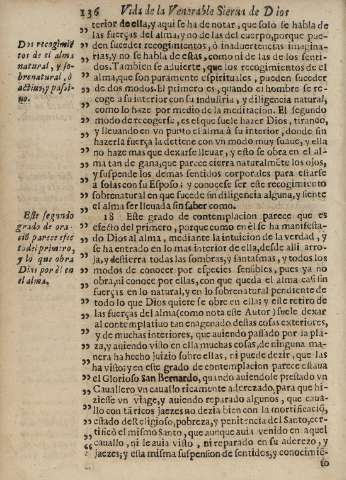 136 Vida de la Venerable Sierua de Dios
terior de ella, y aqui se ha de notar, que solo se habla de
las fuerças del alma, y no de las del cuerpo, porque pue-
den suceder recogimientos, ò inaduertencias imagina-
rias, y no se habla de estas, como ni de las de los senti-
dos. Tambien se aduierte, que los recogimientos de el
alma, que son puramente espirituales, pueden suceder
de dos modos. El primero es, quando el hombre se re-
coge a su interior con su industria, y diligencia natural,
como lo haze por medio de la meditacion. El segundo
modo de recogerse, es el que suele hazer Dios, tirando,
y lleuando en vn punto el alma à su interior, donde sin
hazerla fuerça la detiene con vn modo muy suaue, y ella
no haze mas que dexarse lleuar, y esto se obra en el al-
ma tan de gana, que parece cierra naturalmẽte los ojos,
y suspende los demas sentidos corporales para estarse
à solas con su Esposo; y conocese ser este recogimiento
sobrenatural en que sucede sin diligencia alguna, y siente
el alma ser lleuada sin saber como.
18 Este grado de contemplacion parece que es
efecto del primero, porque como en èl se ha manifesta-
do Dios al alma, mediante la intuicion de la verdad, y
se ha entrado en lo mas interior de ella, desde alli arro-
ja, y destierra todas las sombras, y fantasmas, y todos los
modos de conocer por especies sensibles, pues ya no
obra, ni conoce por ellas, con que queda el alma casi sin
fuerças en lo natural, y en lo sobrenatural pendiente de
todo lo que Dios quiere se obre en ellas; y este retiro de
las fuerças del alma (como nota este Autor) suele dexar
al contemplatiuo tan enagenado destas cosas exteriores,
y de muchas interiores, que auiendo passado por la pla-
za, y auiendo visto en ella muchas cosas, de ninguna ma-
nera ha hecho juizio sobre ellas, ni puede dezir, que las
ha visto; y en este grado de contemplacion parece estaua
el Glorioso San Bernardo, quando auiendole prestado vn
Cauallero vn cauallo ricamente aderezado, para que hi-
ziesse vn viage, y auiendo reparado algunos, que caua-
llo con tã ricos jaezes no dezia bien con la mortificaciõ,
estado de Religioso, pobreza, y penitencia del Santo, cer-
tificò el mismo Santo, que aunque auia venido en aquel
cauallo, ni le auia visto, ni reparado en su aderezo, y
jaezes; y esta misma suspension de sentidos, y conocimiẽ-
to
Dos recogimiẽ
tos de el alma
natural, y so-
brenatural, ò
actiuo, y passi-
uo.
Este segundo
grado de ora-
ciõ parece efec
to del primero,
y lo que obra
Dios por èl en
el alma.